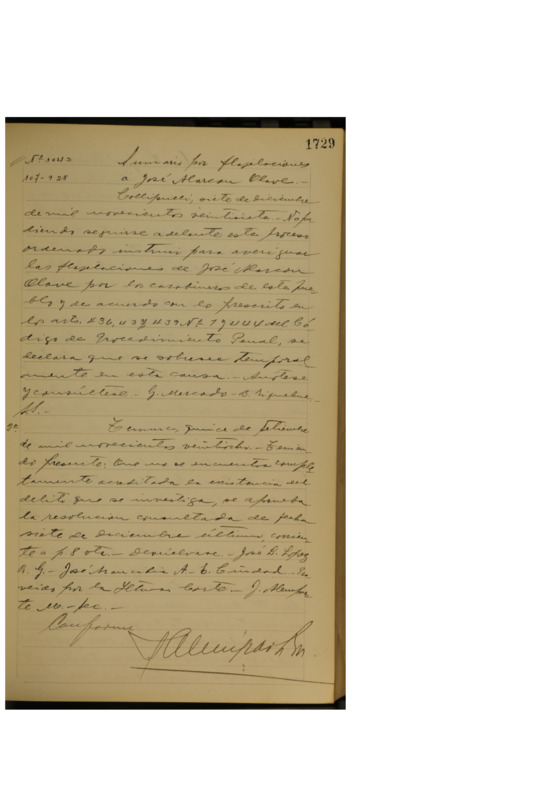 1729
Nº 1042 Sumario por flagelaciones
107-928 a José Alarcon Olave.-
Collipulli, siete de diciembre
de mil novecientos veintisiete.- No pu
diendo seguirse adelante este proceso
ordenado instruir para averiguar
las flagelaciones de José Alarcon
Olave por los carabineros de este pue
blo y de acuerdo con lo prescrito en
los arts. 436, 437 y 439 Nº 1 y 444 del Có
digo de Procedimiento Penal, se
declara que se sobresee temporal
mente en esta causa.- Anótese
y consúltese.- G. Mercado.- B. Riquelme.
SS.-
2ª Temuco, quince de Setiembre
de mil novecientos veintiocho.- Tenien
do presente: Que no se encuentra comple
tamente acreditada la existencia del
delito que se investiga, se aprueba
la resolucion consultada de fecha
siete de diciembre último, corrien
te a f. 8 vta.- Devuélvase.- José D. López
R. G.- José A.- E. Ciudad.- Pro
veido por la Iltma. Corte.- J.
te M.- sec.-
Conforme